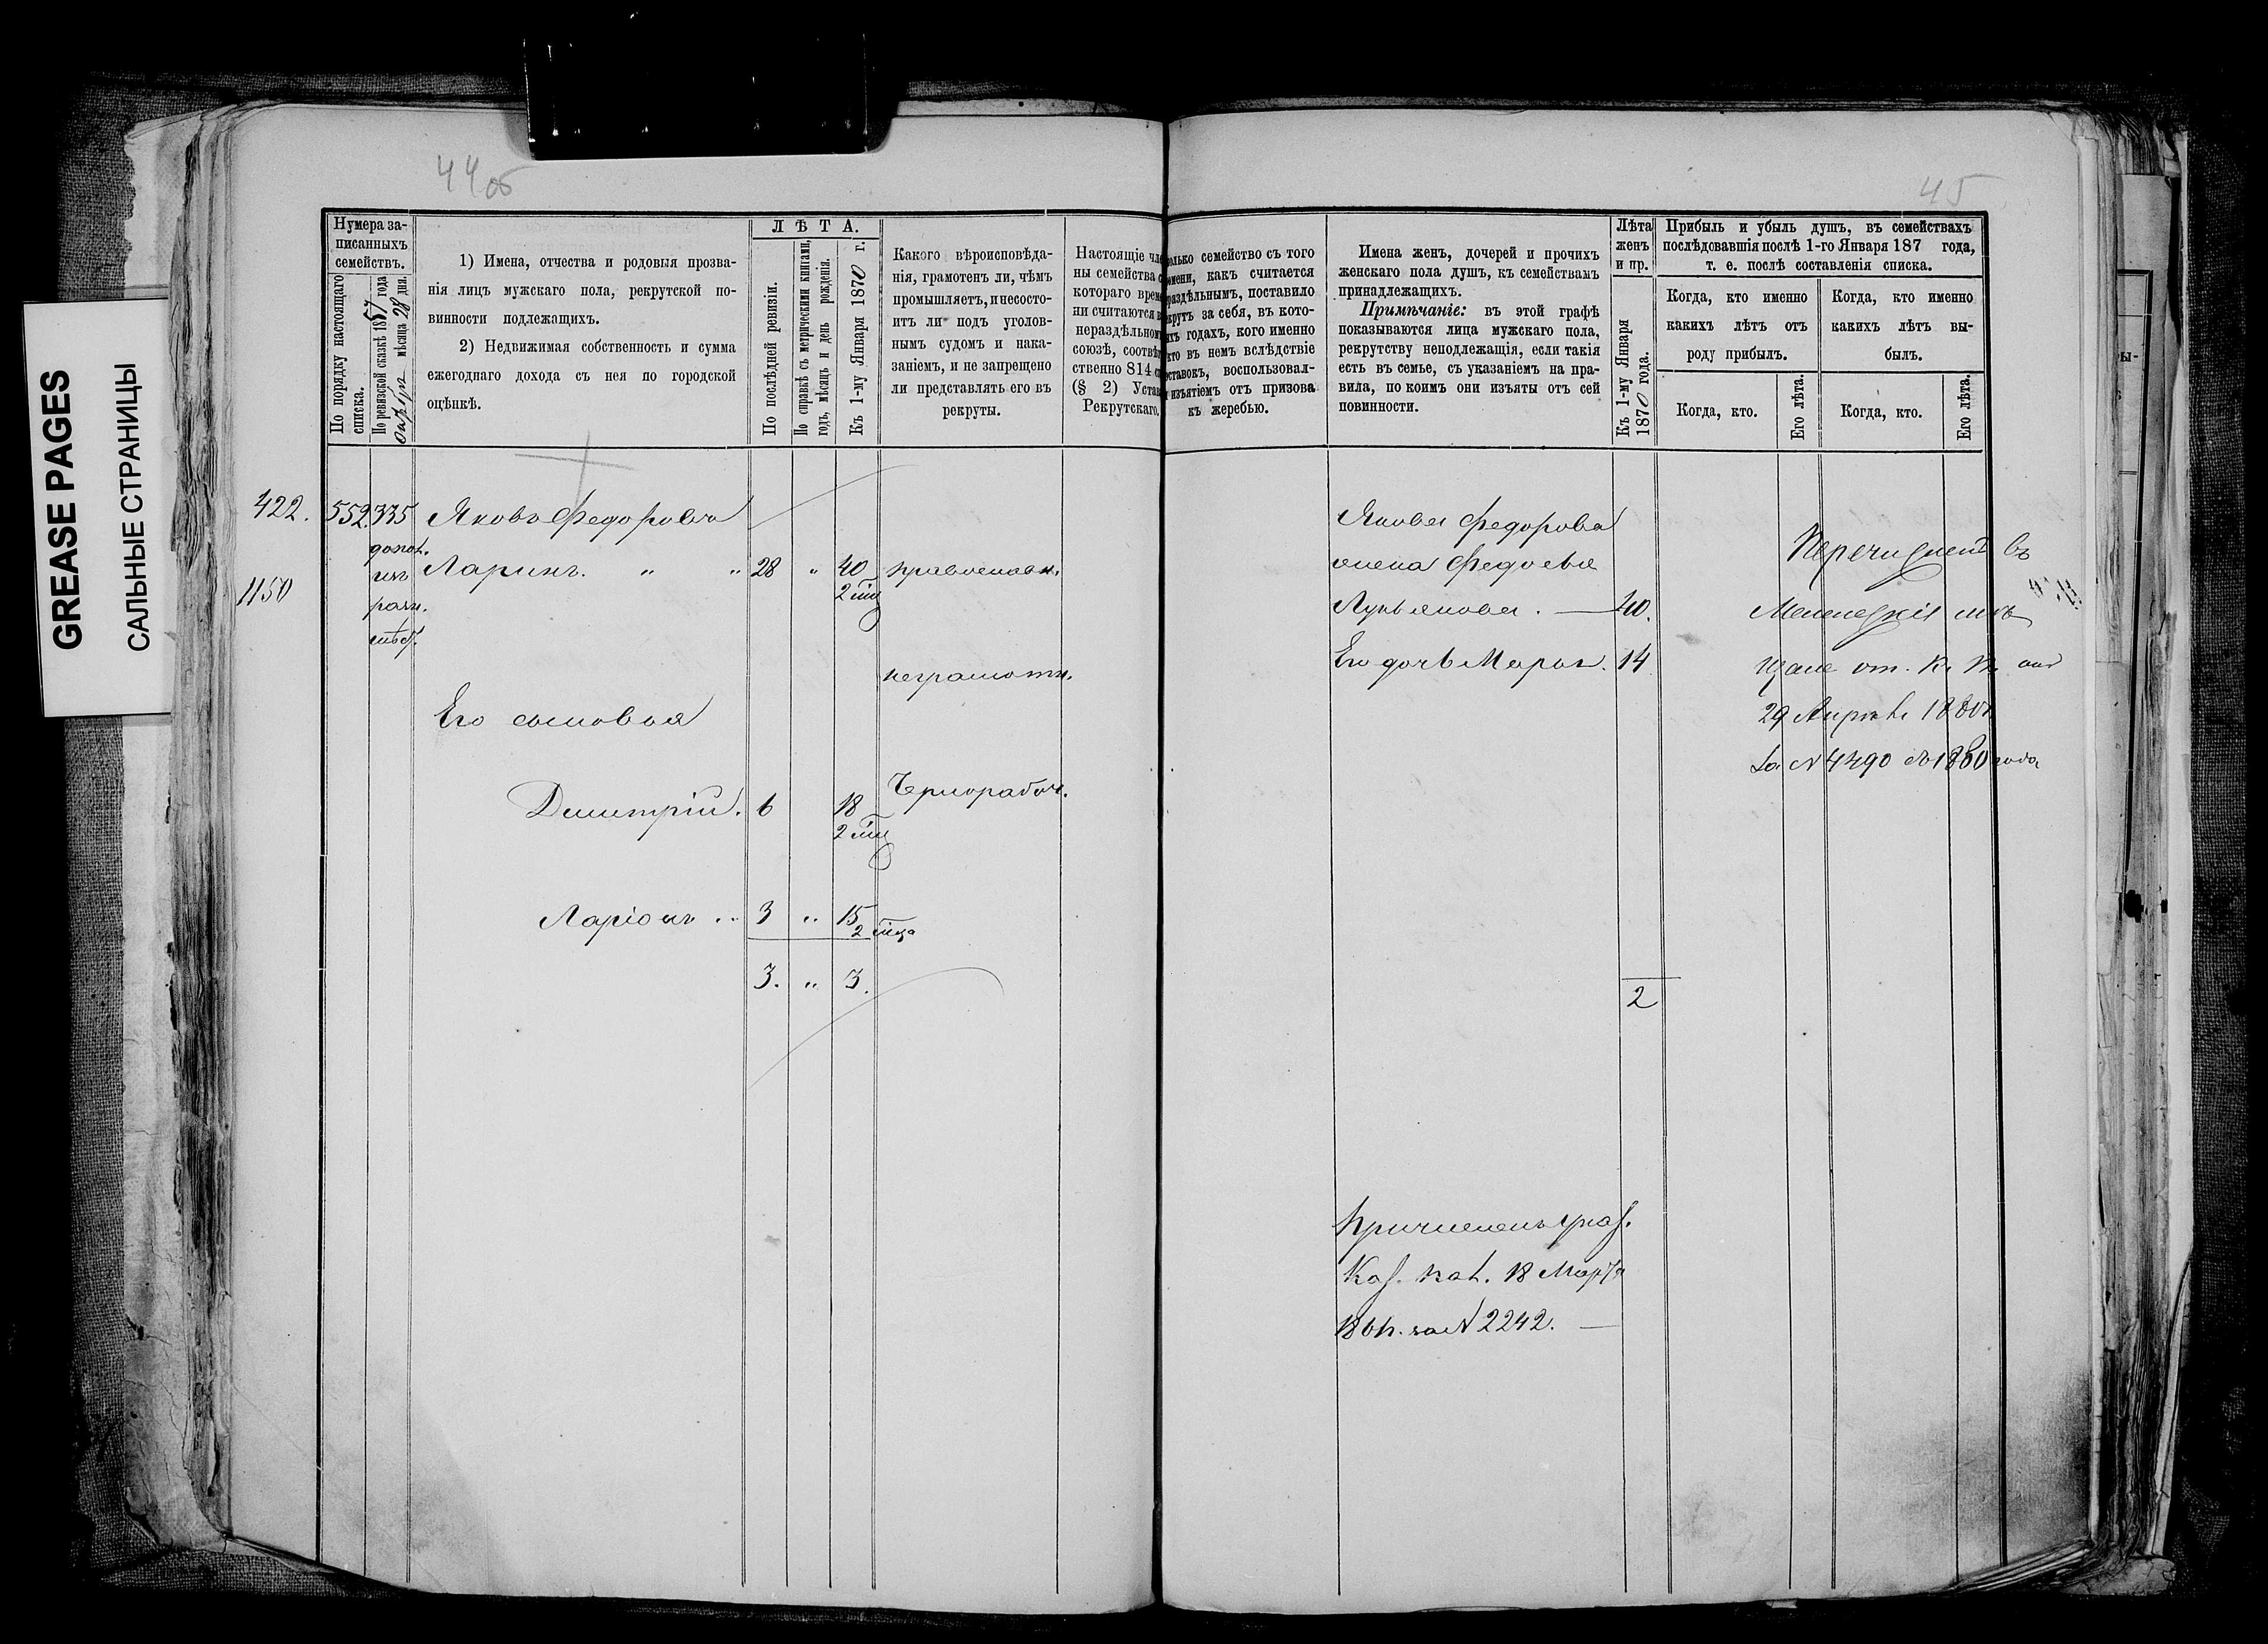 GREASE PAGES
САЛЬНЫЕ СТРАНИЦЫ
44 об
Нумера за-
писанныхъ
семействъ.
По порядку настоящаго
списка.
По ревизской сказкѣ 1857 года
мѣсяца 28 дня.
1) Имена, отчества и родовыя прозва-
нія лицъ мужскаго пола, рекрутской по-
винности подлежащихъ.
2) Недвижимая собственность и сумма
ежегоднаго дохода съ нея по городской
оцѣнкѣ.
ЛѢТА.
По послѣдней ревизіи.
По справкѣ съ метрическими книгами,
годъ, мѣсяцъ и день рожденія.
Къ 1-му Января 1870 г.
Какого вѣроисповѣда-
нія, грамотенъ ли, чѣмъ
промышляетъ, и несосто-
итъ ли подъ уголов-
нымъ судомъ и нака-
заніемъ, и не запрещено
ли представлять его въ
рекруты.
Настоящіе чле
ны семейства с
котораго време
ни считаются в
нераздѣльномъ
союзѣ, соотвѣт
ственно 814 с
(§ 2) Устав
Рекрутскаго.
422. 552. 335 Яковъ Федоровъ
допол. Ларинъ. " " 28 " 40 православн.
1150
2 мц
неграмотн.
Его сыновья
Чернорабоч.
Димитрій. 6 18
2 мц
Ларіонъ " 3 " 15
2 мца
3. " 3.
45
олько семейство съ того
емени, какъ считается
раздѣльнымъ, поставило
крутъ за себя, въ кото-
хъ годахъ, кого именно
кто въ немъ вслѣдствіе
оставокъ, воспользовал-
изъятіемъ отъ призова
къ жеребью.
Имена женъ, дочерей и прочихъ
женскаго пола душъ, къ семействамъ
принадлежащихъ.
Примѣчаніе: въ этой графѣ
показываются лица мужскаго пола,
рекрутству неподлежащія, если такія
есть въ семье, съ указаніемъ на пра-
вила, по коимъ они изъяты отъ сей
повинности.
Лѣта
женъ
и пр.
Къ 1-му Января
1870 года.
Прибыль и убыль душъ, въ семействахъ
послѣдовавшія послѣ 1-го Января 187 года,
т. е. послѣ составленія списка.
Когда, кто именно
какихъ лѣтъ отъ
роду прибылъ.
Когда, кто именно
какихъ лѣтъ вы-
былъ.
Когда, кто.
Его лѣта.
Когда, кто.
Его лѣта.
Якова Федорова
жена Федосья
Лукьянова. — 40.
Его дочь Марья. 14
2
Перечисленъ въ
мѣ
щане от. К. П.
29 Апрѣля 1880
За № 4490 1880 года
Причисленъ указ.
Каз. Пал. 18 Марта
за № 2242. —